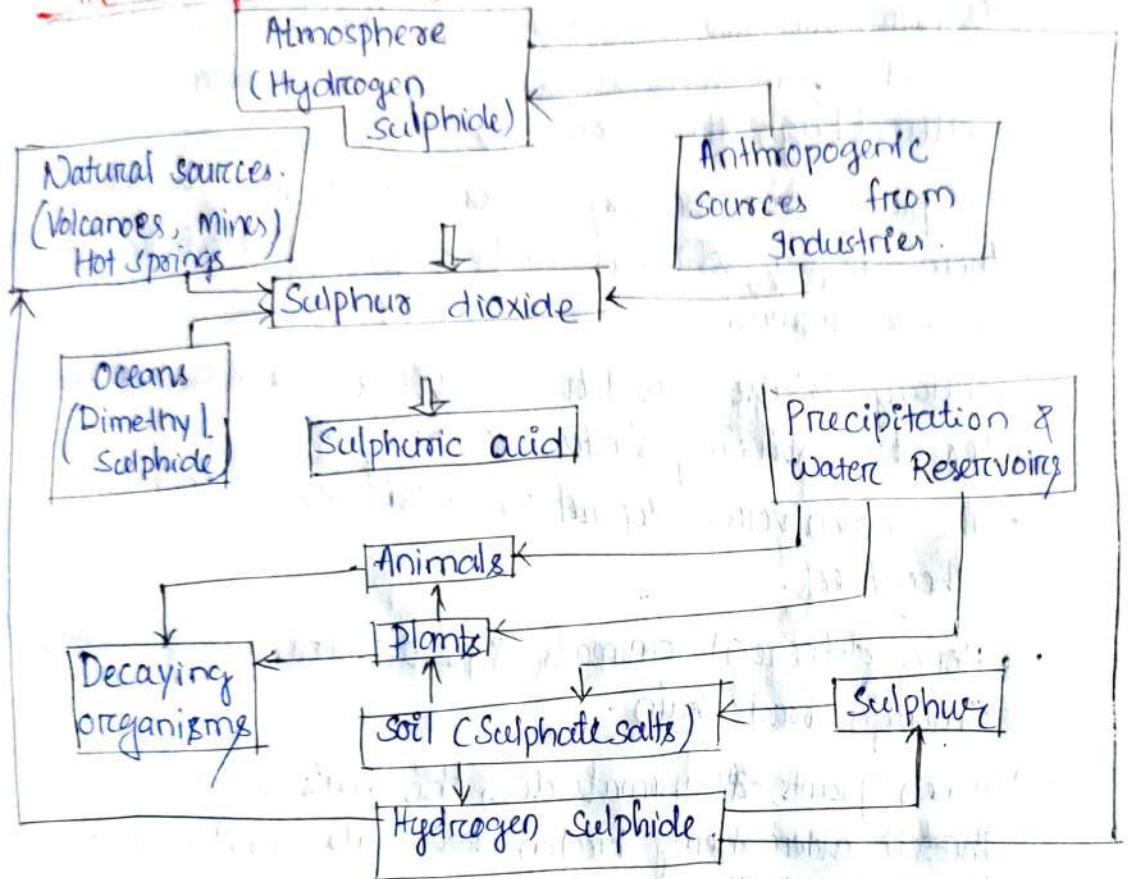 Atmosphere
(Hydrogen
sulphide)
Natural sources.
(Volcanoes, Mines)
Hot springs
Anthropogenic
Sources from
Industries.
Sulphur dioxide
Oceans
(Dimethyl
Sulphide)
Sulphuric acid
Precipitation &
Water Reservoirs
Animals
Plants
Decaying
organisms
Soil (Sulphate salts)
Sulphur
Hydrogen Sulphide.